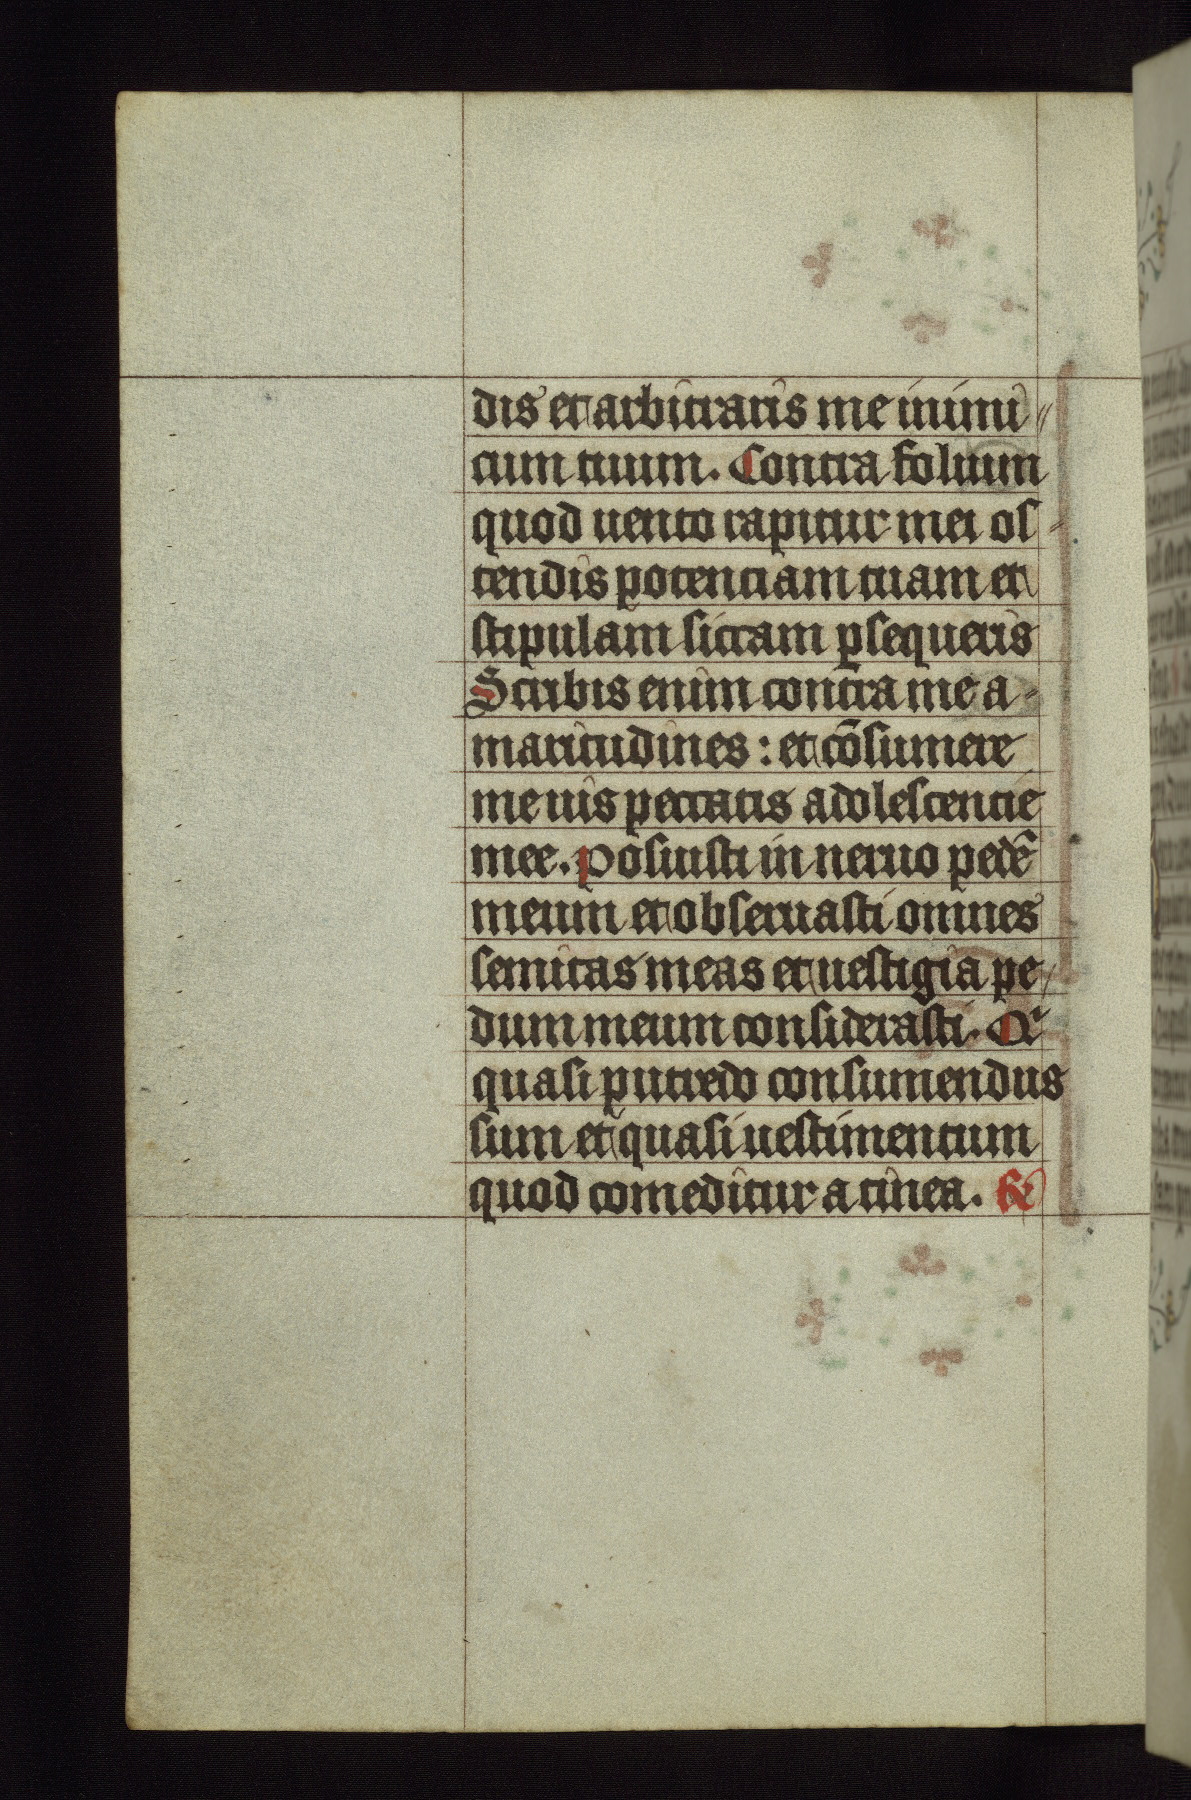 dis et arbitraris me inimi
cum tuum. Contra folium
quod uento rapitur mei os
tendis potenciam tuam et
stipulam siccam ꝑsequeris
Scribis enim contra me a-
maritudines : et cōsumere
me uis peccatis adolescencie
mee. Posuisti in neruo pedē
meum et obseruasti omnes
semitas meas et uestigia pe
dum meum considerasti. Qͥ
quasi putredo consumendus
sum et quasi uestimentum
quod comeditur a tinea. ℟